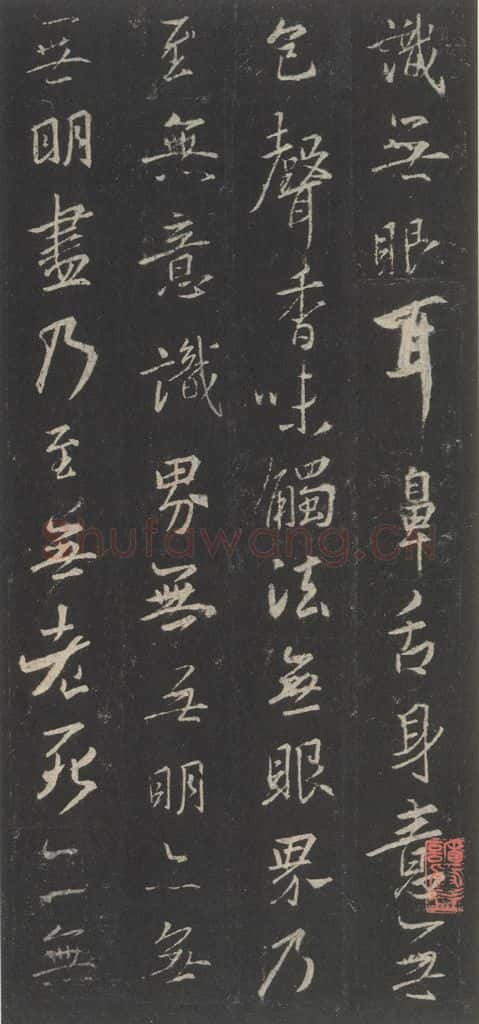 識無眼耳鼻舌身意無
色聲香味觸法無眼界乃
至無意識界無無明亦無
無明盡乃至無老死亦無
Shufawang.CN